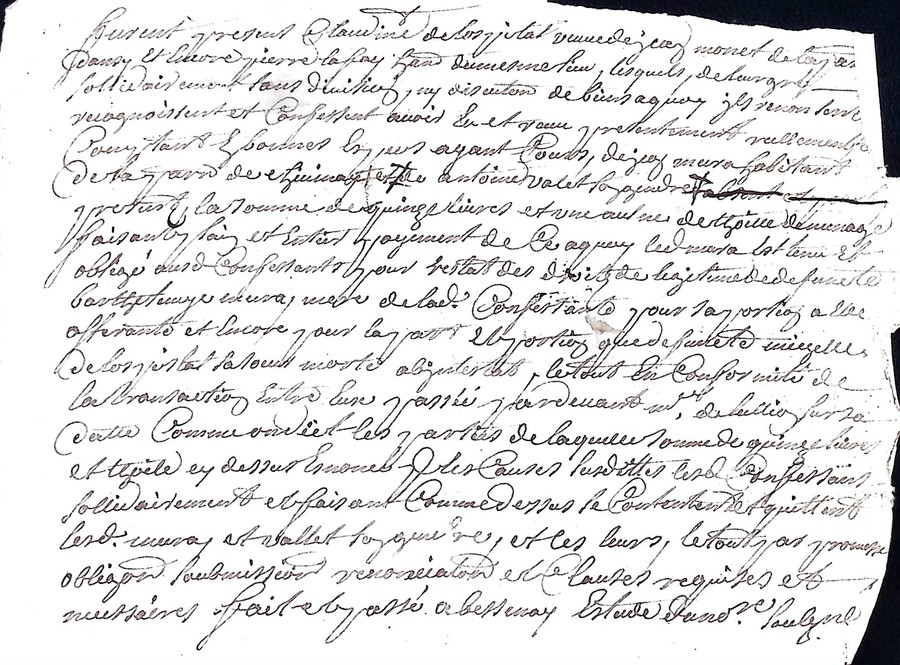 furent presents Claudine de Lospital veuve de jean monet de la par
dansy et Encore pierre la fay dumesme lieu, lesquels, de leur gré
sollidairement sans division, ny discution de biens aquoy ils renoncent
recognoissent et Confessent avoir Eu et receu presentement reellement
Comptant Es bonnes Especes ayant Cours, de jean mura habitant
de la parr de et de antoine valet son gendre
present, la somme de quinze livres et une aulne de thoille de menage
faisant fain et Entier payement de Ce aquoy led mura Est tenu Et
obligé ausd Confessants pour restat des droits de legitime de defuncte
barthelemye mura, mere de lad. Confessante pour sa portion a Elle
afferante et Encore pour la part Et portion que defuncte
de Lospital sa soeur morte abintestat, le tout En Conformité de
la transaction Entre Eux passée pardevant me. sur sa
datte Comme ont dit les parties de laquelle somme de quinze livres
et thoile cy dessus Enoncée les Causes susdittes lesd Confessants
sollidairement et faisant Comme dessus se Contentent et quittent
lesd. mura et vallet son gendre, et les leurs, le tout par promesse
obligaon soubmission renonciaton et Clauses requises et
necessaires fait et passé a bessenay Estude dudt. nre soubzné